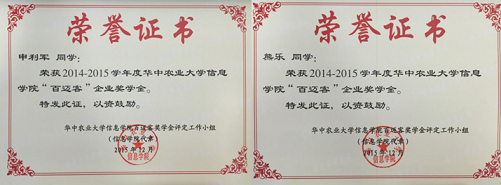 荣誉证书
申利军 同学：
荣获2014-2015学年度华中农业大学信息
学院“百迈客”企业奖学金。
特发此证，以资鼓励。
华中农业大学信息学院百迈客奖学金评定工作小组
（信息学院代章）
2015年12月
信息学院
荣誉证书
熊乐 同学：
荣获2014-2015学年度华中农业大学信息
学院“百迈客”企业奖学金。
特发此证，以资鼓励。
华中农业大学信息学院百迈客奖学金评定工作小组
（信息学院代章）
2015年12月
信息学院